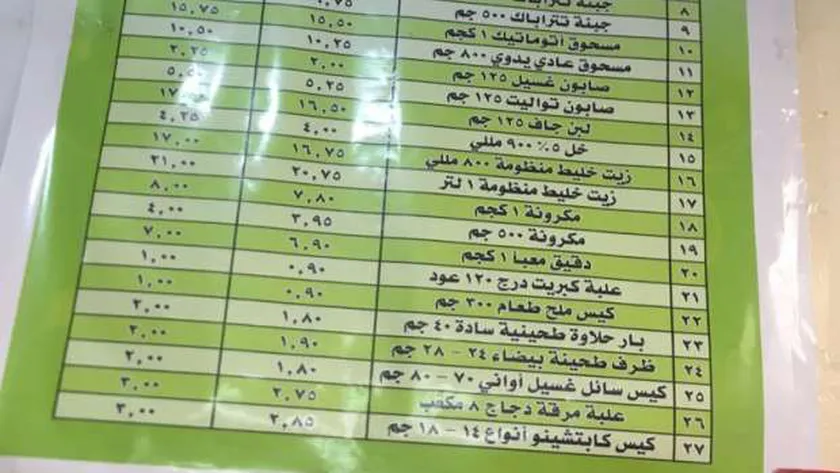 ٨ جبنة تتراباك
٩ جبنة تتراباك ٥٠٠ جم
١٠ مسحوق أتوماتيك ١ كجم ١٥,٥٠ ١٥,٧٥
١١ مسحوق عادي يدوي ٨٠٠ جم ١٠,٢٥ ١٠,٥٠
١٢ صابون غسيل ١٢٥ جم ٢,٠٠ ٢,٢٥
١٣ صابون تواليت ١٢٥ جم ٥,٢٥ ٥,٥٠
١٤ لبن جاف ١٢٥ جم ١٦,٥٠
١٥ خل ٥٪ ٩٠٠ مللي ٤,٠٠ ٤,٢٥
١٦ زيت خليط منظومة ٨٠٠ مللي ١٦,٧٥ ١٧,٠٠
١٧ زيت خليط منظومة ١ لتر ٢٠,٧٥ ٢١,٠٠
١٨ مكرونة ١ كجم ٧,٨٠ ٨,٠٠
١٩ مكرونة ٥٠٠ جم ٣,٩٥ ٤,٠٠
٢٠ دقيق معبأ ١ كجم ٦,٩٠ ٧,٠٠
٢١ علبة كبريت درج ١٢٠ عود ٠,٩٠ ١,٠٠
٢٢ كيس ملح طعام ٣٠٠ جم ٠,٩٠ ١,٠٠
٢٣ بار حلاوة طحينية سادة ٤٠ جم ١,٨٠ ٢,٠٠
٢٤ ظرف طحينة بيضاء ٢٤ - ٢٨ جم ١,٩٠ ٢,٠٠
٢٥ كيس سائل غسيل أواني ٧٠ - ٨٠ جم ١,٨٠ ٢,٠٠
٢٦ علبة مرقة دجاج ٨ مكعب ٢,٧٥ ٣,٠٠
٢٧ كيس كابتشينو أنواع ١٤ - ١٨ جم ٢,٨٥ ٣,٠٠